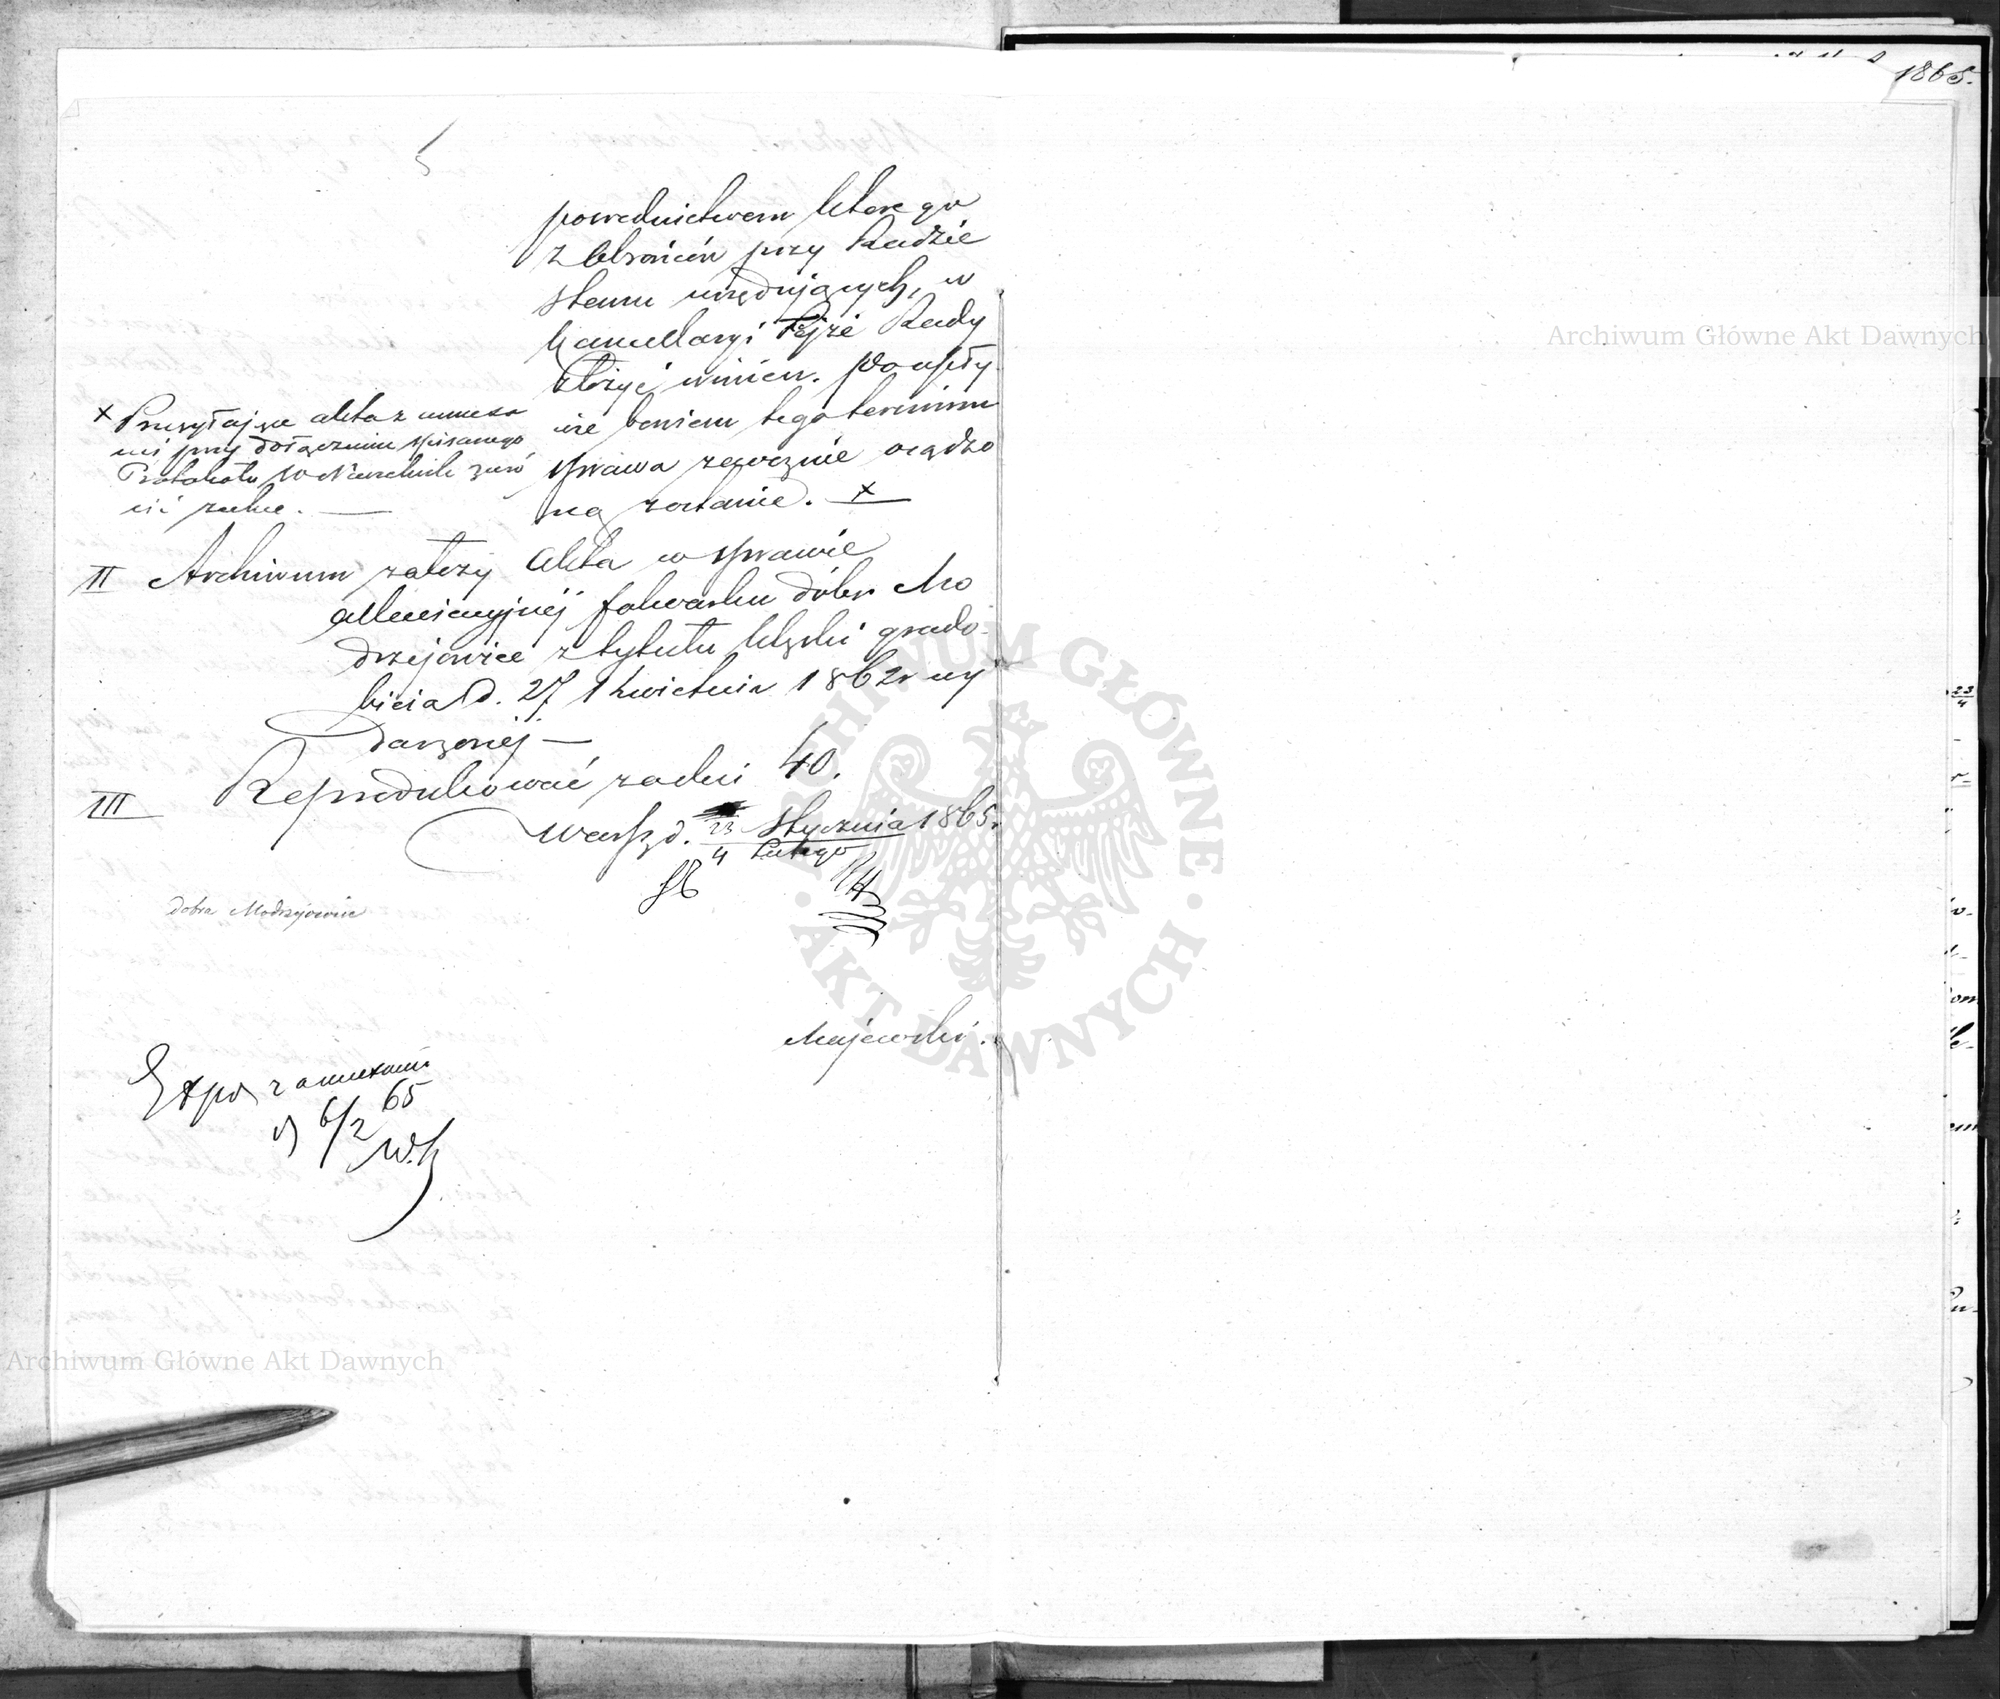 1865.
pośrednictwem którego
z Obrońców przy Radzie
Stanu urzędujących, w
Kancellaryi Tejże Rady
złożyć winien. Po upły-
wie bowiem tego terminu
sprawa zaocznie osądzo
ną zostanie. x
x Przesyłając akta z annexa
mi przy dołączeniu spisanego
Protokołu W Naczelnik zwró
ci rzeczone.
II Archiwum załączy Akta w sprawie
folwarku dóbr Mo
drzejowice z tytułu klęski grado-
bicia d. 27 Kwietnia 1862 r wy
darzonej —
III Reprodukować za dni 40.
Warsz d. 23/4 Stycznia/Lutego 1865.
dobra Modrzejowice
Majewski.
Exped z annexami
d 6/2 65
W.K
Archiwum Główne Akt Dawnych
ARCHIWUM GŁÓWNE · AKT DAWNYCH ·
Archiwum Główne Akt Dawnych